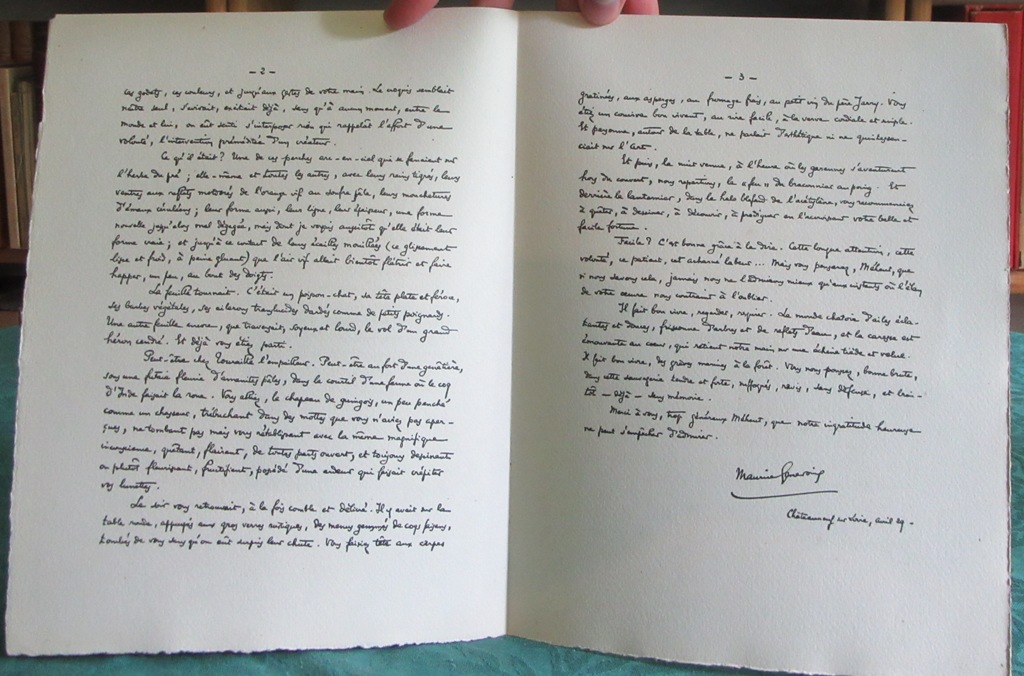 - 2 -
ces godets, ces couleurs, et jusqu'aux gestes de votre main. Le croquis semblait
naître seul, s'avivait, existait déjà, sans qu'à aucun moment, entre le
monde et lui, on eût senti s'interposer rien qui rappelât l'effort d'une
volonté, l'intervention préméditée d'un créateur.
Ce qu'il était ? Une de ces perches arc-en-ciel qui se fanaient sur
l'herbe du pré ; elle-même et toutes les autres, avec leurs reins tigrés, leurs
ventres aux reflets mordorés de l'orange vif au soufre pâle, leurs mouchetures
d'émaux céruléens ; leur forme aussi, leur ligne, leur épaisseur, une forme
nouvelle jusqu'alors mal dégagée, mais dont je voyais aussitôt qu'elle était leur
forme vraie ; et jusqu'à ce contact de leurs écailles mouillées (ce glissement
lisse et froid, à peine gluant) que l'air vif allait bientôt flétrir et faire
happer, un peu, au bout des doigts.
La feuille tournait. C'était un poisson-chat, sa tête plate et féroce,
ses barbes végétales, ses ailerons translucides dardés comme de petits poignards.
Une autre feuille encore, que traversait, soyeux et lourd, le vol d'un grand
héron cendré. Et déjà vous étiez parti.
Peut-être chez Touraille l'empailleur. Peut-être au fort d'une genêtière,
sous une futaie fleurie d'amanites pâles, dans le courtil d'une ferme où le coq
d'Inde faisait la roue. Vous alliez, le chapeau de guingois, un peu penché
comme un chasseur, trébuchant dans des mottes que vous n'aviez pas aper-
çues, ne tombant pas mais vous rétablissant avec la même magnifique
insouciance, quêtant, flairant, de toutes parts ouvert, et toujours dessinant
ou plutôt fleurissant, fructifiant, possédé d'une ardeur qui faisait crépiter
vos lunettes.
Le soir vous retrouvait, à la fois comblé et délivré. Il y avait sur la
table ronde, appuyés aux gros verres rustiques, des menus de coqs faisans,
tombés de vous sans qu'on eût surpris leur chute. Vous faisiez tête aux carpes
- 3 -
gratinées, aux asperges, au fromage frais, au petit vin du père Jarry. Vous
étiez un convive bon vivant, au rire facile, à la verve cordiale et simple.
Et personne, autour de la table, ne parlait d'esthétique ni ne quintessen-
ciait sur l'art.
Et puis, la nuit venue, à l'heure où les garennes s'aventurent
hors du couvert, nous repartions, le « feu » du braconnier au poing. Et
derrière le lanternier, dans le halo blafard de l'acétylène, vous recommenciez
à quêter, à dessiner, à découvrir, à prodiguer en l'accroissant votre belle et
facile fortune.
Facile ? C'est bonne grâce à la dire. Cette longue attention, cette
volonté, ce patient, cet acharné labeur... Mais vous pouvez, Méheut, que
si nous savons cela, jamais nous ne l'éprouvons mieux qu'aux instants où l'élan
de votre œuvre nous contraint à l'oublier.
Il fait bon vivre, regarder, respirer. Le monde chatoie d'ailes écla-
tantes et douces, frissonne d'arbres et de reflets d'eau, et la caresse est
émouvante au cœur, qui retient notre main sur une échine tiède et velue.
Il fait bon vivre, des grèves marines à la forêt. Vous nous poussez, bonne brute,
dans cette sauvagerie tendre et forte, suffoqués, ravis, sans défense, et bien-
tôt — déjà — sans mémoire.
Merci à vous, trop généreux Méheut, que notre ingratitude heureuse
ne peut s'empêcher d'admirer.
Maurice Genevoix
Châteauneuf sur Loire, avril 29.